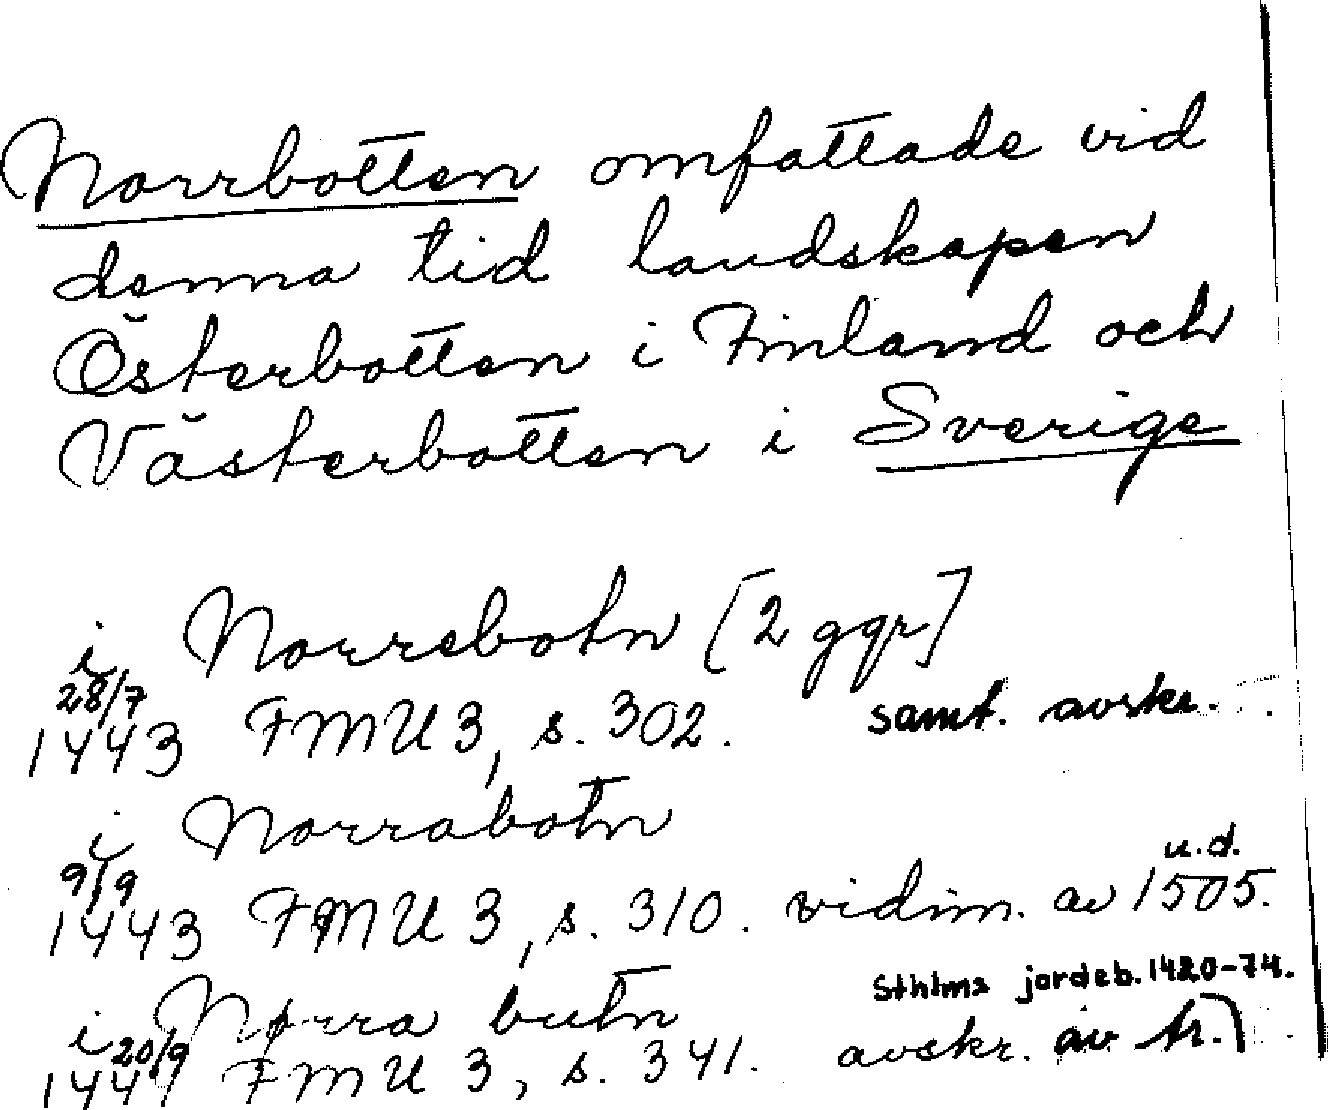 Norrbotten omfattade vid
denna tid landskapen
Österbotten i Finland och
Västerbotten i Sverige
i Norrebotn [2 ggr]
28/7
1443 FMU 3, s. 302. samt. avskr.
i Norrabotn
9/9 u.d.
1443 FMU 3, s. 310. vidim. av 1505.
i Norra butn Sthlms jordeb. 1420-74.
20/9
144 FMU 3, s. 341. avskr. av tr.)